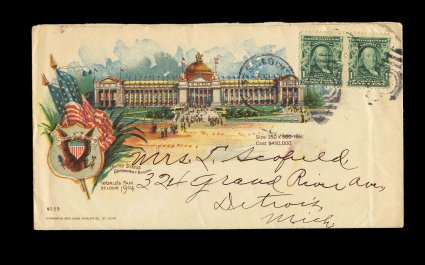 ST. LOUIS
Size 250 x 850 feet
Cost $450,000
UNITED STATES
GOVERNMENT BUILDING
WORLD'S FAIR
ST. LOUIS 1904
Mrs. T. Scofield
324 Grand River Ave,
Detroit
Mich
NO. 59.